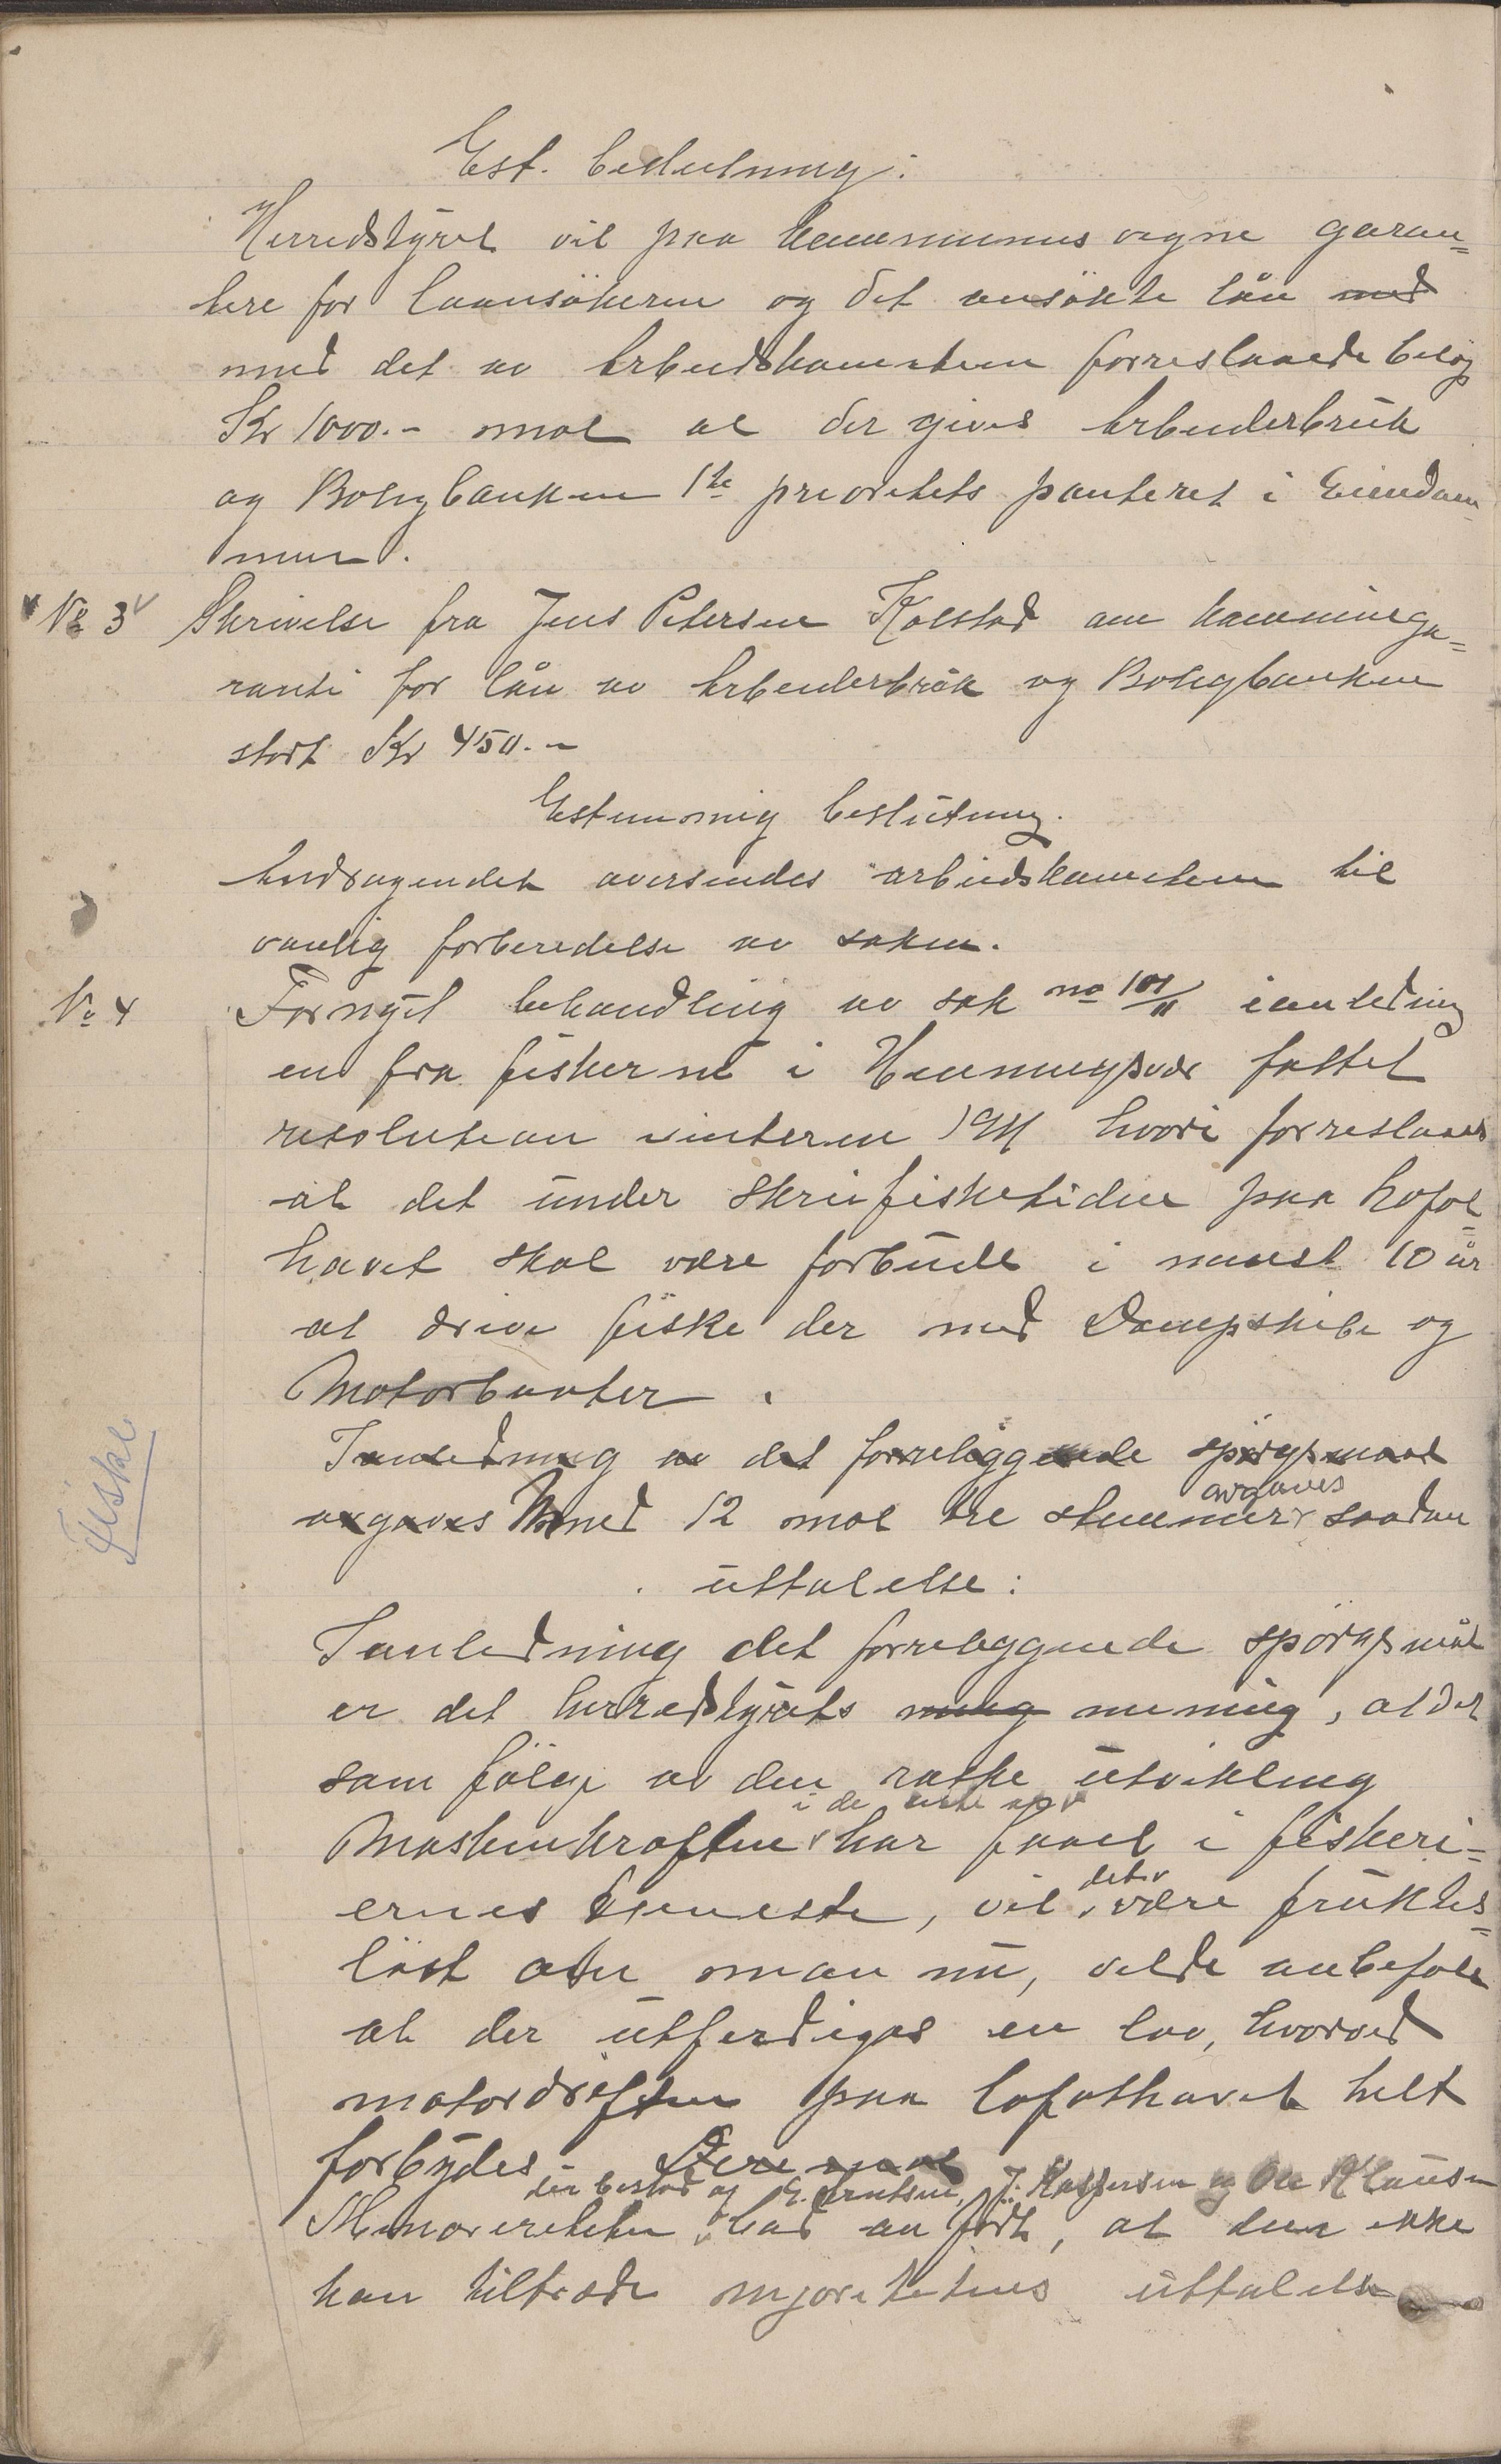 Est. beslutning:
Herredstyret vil paa kommunens vegne garan=
tere for laansökeren og det ansökte lån med
med det av Arbeidskomiteen forreslaaede beløp
Kr 1000.- mot at der gives Arbeiderbrük
og Boligbanken 1ste prioritets panteret i Eiendom
men.
No 3 Skrivelse fra Jens Petersen Kolstad om kommünega=
ranti for lån av Arbeiderbrük og Boligbanken
stort Kr 450.-
Estemmig beslütning.
Andragendet oversendes arbeidskomiteen til
vanlig forberedelse av saken.
No 4 Fornyet behandling av sak no 101/11 i anledning
en fra fiskerne i Henningsvær fattet
resolution vinteren 1911 hvori forreslaaes
at det ünder skreifisketiden paa Lofot=
havet skal være forbüdt i minst 10 år
at drive fiske der med Dampskibe og
Motorbaater.
Fiske
I anledning av det forreliggende spörgsmaal
avgaves Med 12 mot tre stemmer avgaves saadan
üttalelse:
I anledning det forreliggende spörgsmål
er det herredstyrets mening, at det
som fölge av den raske ütvikling
Maskinkraften i de siste år har faaet i fiskeri=
ernes tjeneste, vil det være früktes=
löst om man nü, vilde anbefale
at der ütferdiges en lov, hvorved
motordriften paa Lofothavet helt
forbydes. Dere mot
Minoriteten der bestod af E. Arntsen, J. Kaspersen og Ole Klausen bad an fört, at den ikke
kan tiltræde mjoritetens üttalelse